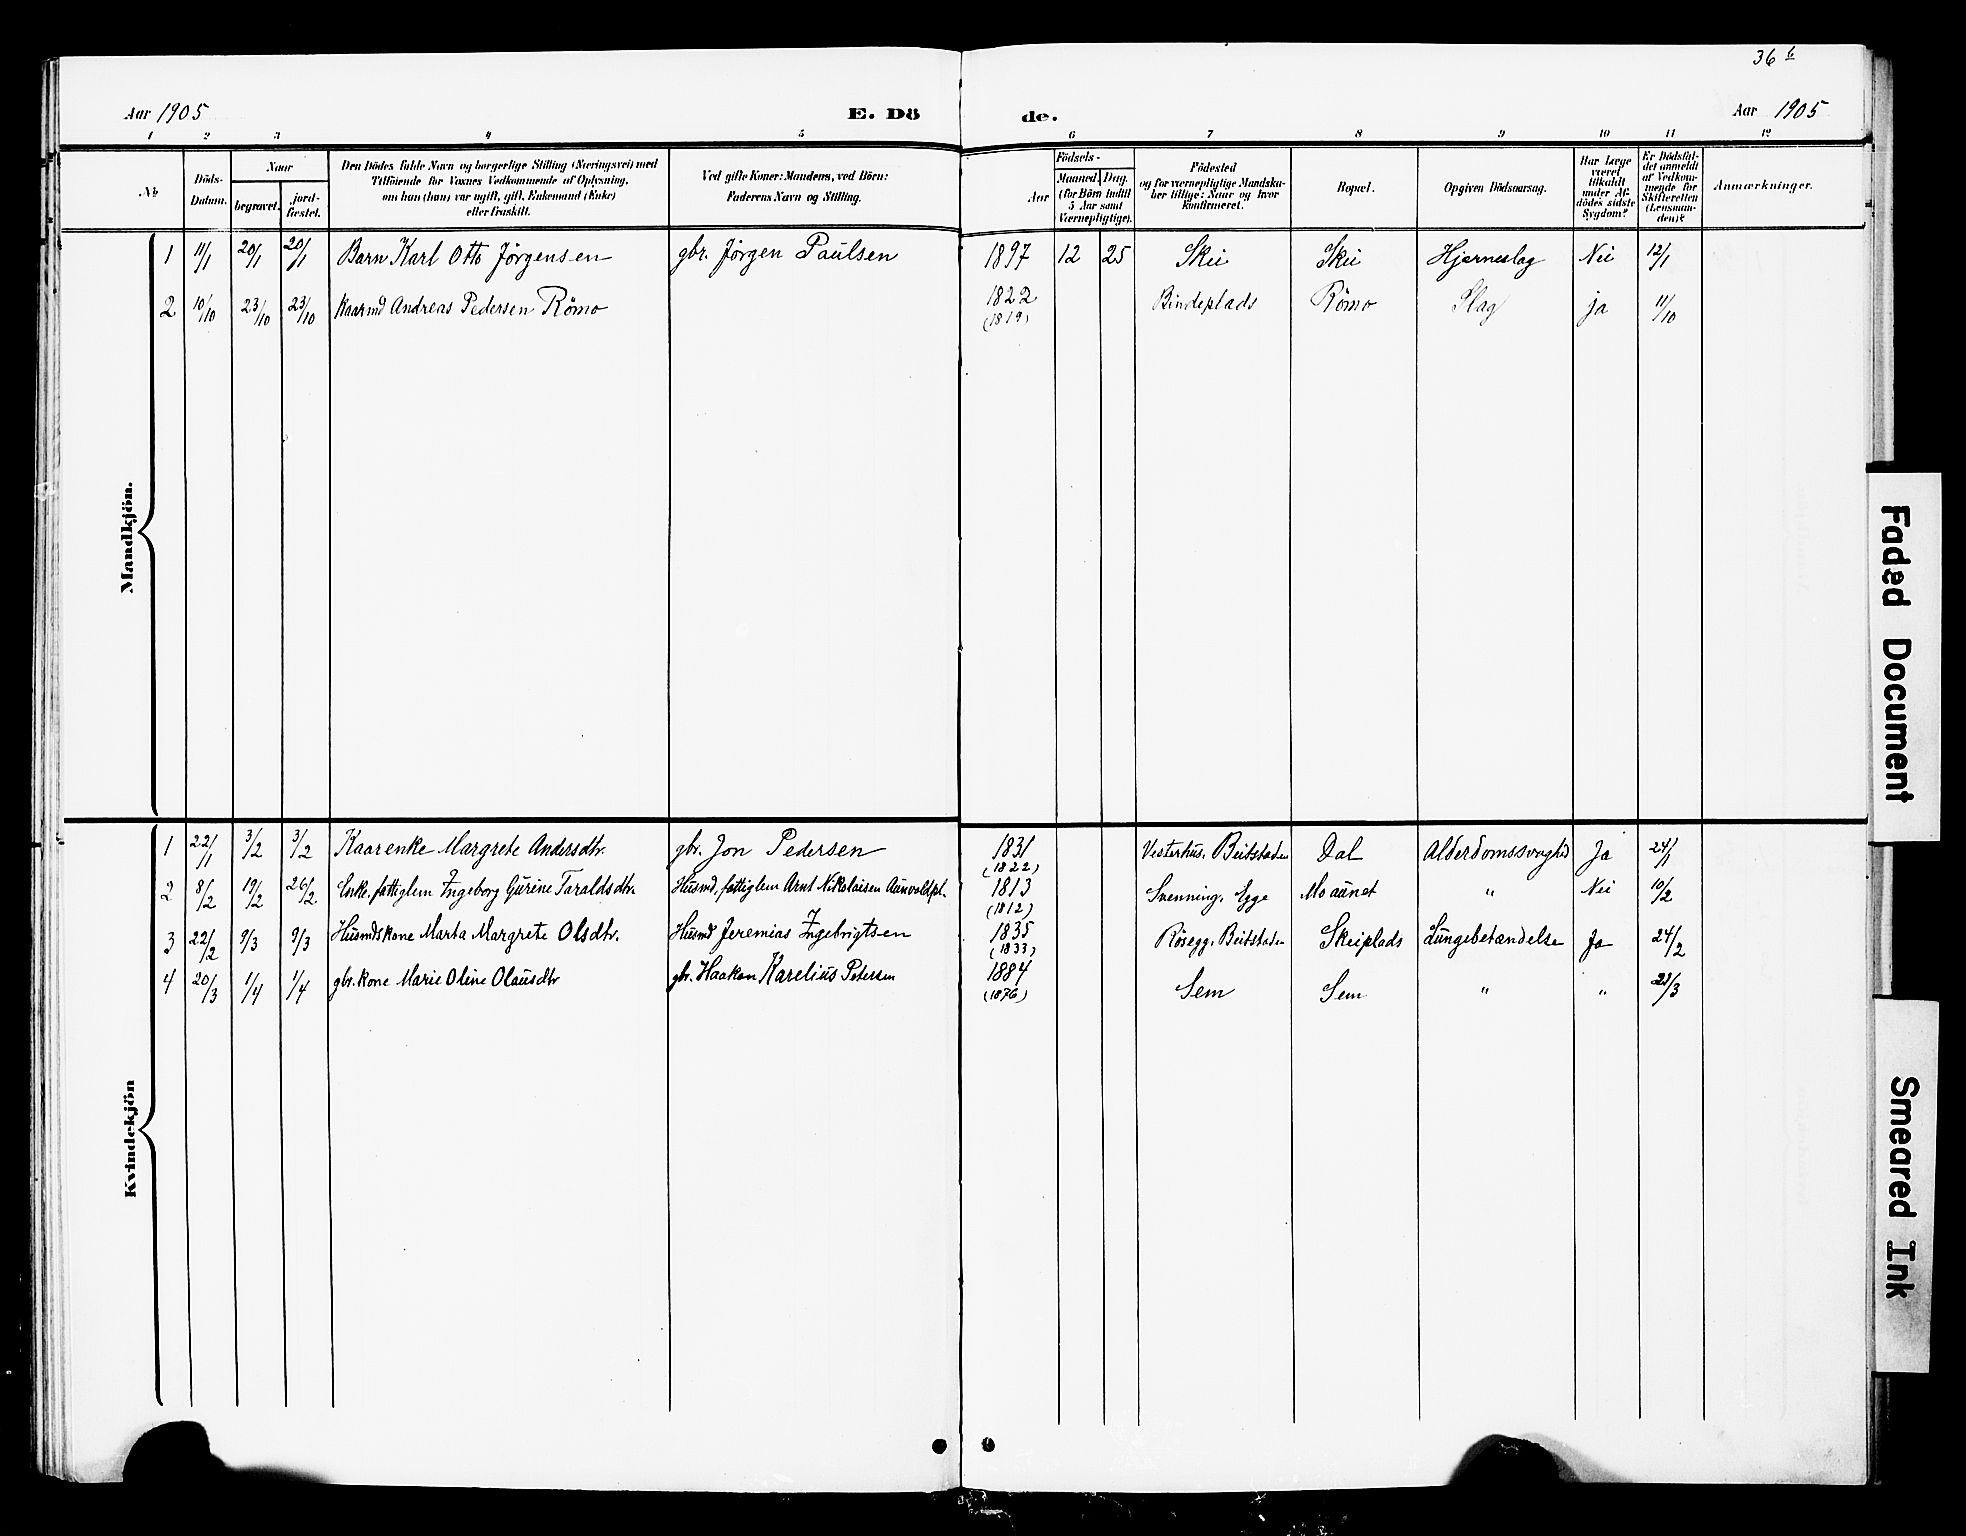 36 b
Aar 1905 E. Dö de. Aar 1905
1 2 3 4 5 6 7 8 9 10 11 12
No. Döds-Datum. Naar begravet. jord-fæstet. Den Dödes fulde Navn og borgerlige Stilling (Næringsvei) med Tilföiende for Voxnes Vedkommende af Oplysning, om han (hun) var ugift, gift, Enkemand (Enke) eller fraskilt. Ved gifte Koner: Mandens, ved Börn: Faderens Navn og Stilling. Födsels- Aar Maaned. Dag. (for Börn indtil 5 Aar samt Værnepligtige). Födested og for værnepligtige Mandskaber tillige: Naar og hvor konfirmeret. Bopæl. Opgiven Dödsaarsag. Har Læge været tilkaldt under Afdödes sidste Sygdom? Er Dödsfaldet anmeldt af Vedkommende for Skifteretten (Lensmanden)? Anmærkninger.
Mandkjön.
1 11/1 20/1 20/1 Barn Karl Otto Jørgensen gbr. Jørgen Paulsen 1897 12 25 Skei Skei Hjerneslag Nei 12/1
2 10/10 23/10 23/10 Kaarmd Andreas Pedersen Römo 1822 (1819) Bindeplads Römo Slag ja 11/10
Kvindekjön
1 22/1 3/2 3/2 Kaarenke Margrete Andersdtr. gbr. Jon Pedersen 1831 (1822) Vesterhus, Beitstaden Dal Alderdomssvaghed Ja 24/1
2 8/2 19/2 26/2 Enke, fattiglem Ingeborg Gurine Taraldsdtr. Husmd, fattiglem Arnt Nikolaisen Aunvoldpl. 1813 (1812) Svenning, Egge Moaunet " Nei 10/2
3 22/2 9/3 9/3 Husmdskone Marta Margrete Olsdtr. Husmd Jeremias Ingebrigtsen 1835 (1833) Røsegg, Beitstaden Skeiplads Lungebetændelse Ja 24/2
4 20/3 1/4 1/4 gbr. kone Marie Oline Olausdtr gbr. Haakon Karelius Petersen 1884 (1876) Sem Sem " " 22/3
Faded Document
Smeared Ink